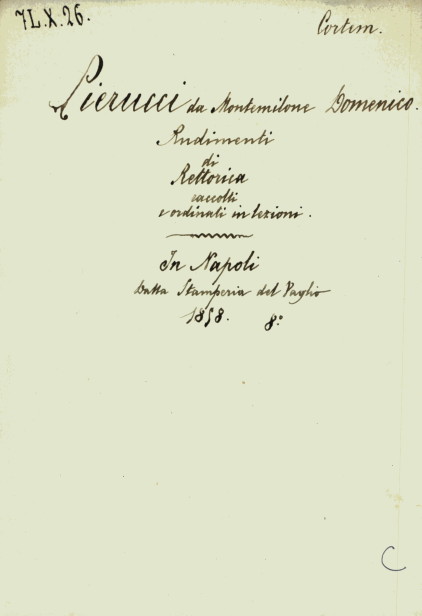 7L.X.26.
Cortem.
Pierucci da Montemilone Domenico.
Rudimenti
di
Rettorica
raccolti
e ordinati in lezioni.
In Napoli
Dalla Stamperia del Vaglio
1858. 8.°
C